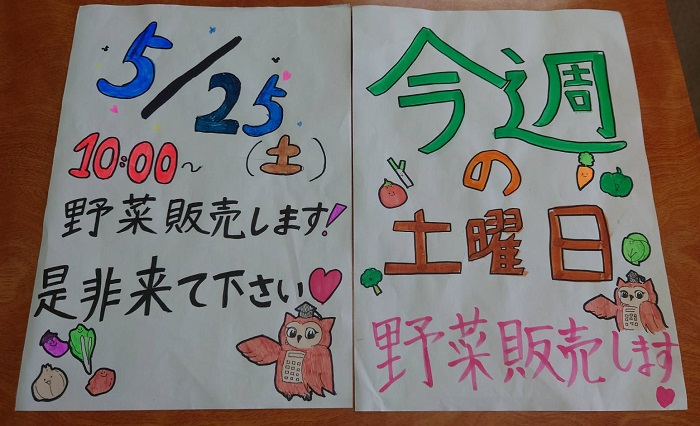 5/25
10:00~ (土)
野菜販売します!
是非来て下さい♥
今週
の
土曜日
野菜販売します♥